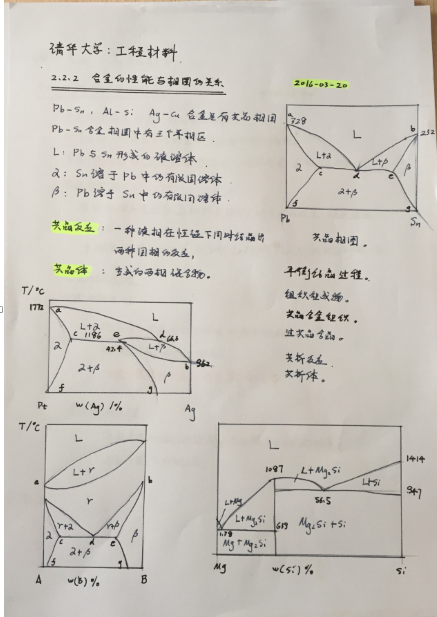 清华大学：工程材料
2.2.2 合金的性能与相图的关系
2016-03-20
Pb-Sn, Al-Si Ag-Cu 合金具有共晶相图
Pb-Sn合金相图中有三个单相区
L: Pb与Sn形成的液溶体
α: Sn溶于Pb中的有限固溶体
β: Pb溶于Sn中的有限固溶体
共晶反应: 一种液相在恒温下同时结晶出
两种固相的反应,
共晶体: 生成的两相混合物。
a
328
L
b
232
L+α
L+β
α
c
d
e
β
α+β
f
g
Pb
Sn
共晶相图。
平衡结晶过程。
组织组成物。
共晶合金组织。
过共晶合金。
共析反应
共析体。
T/°C
1772
a
L
L+α
c
1186
e
d
α
42.4
L+β
b
962
α+β
β
f
g
Pt
w(Ag) /%
Ag
T/°C
L
L+r
a
b
r
r+α
r+β
α
c
d
e
β
α+β
f
g
A
w(b) %
B
L
1087
L+Mg₂Si
1414
L+Mg
L+Mg₂Si
L+Si
947
56.5
1.38
639
Mg+Mg₂Si
Mg₂Si+Si
Mg
w(Si) %
Si